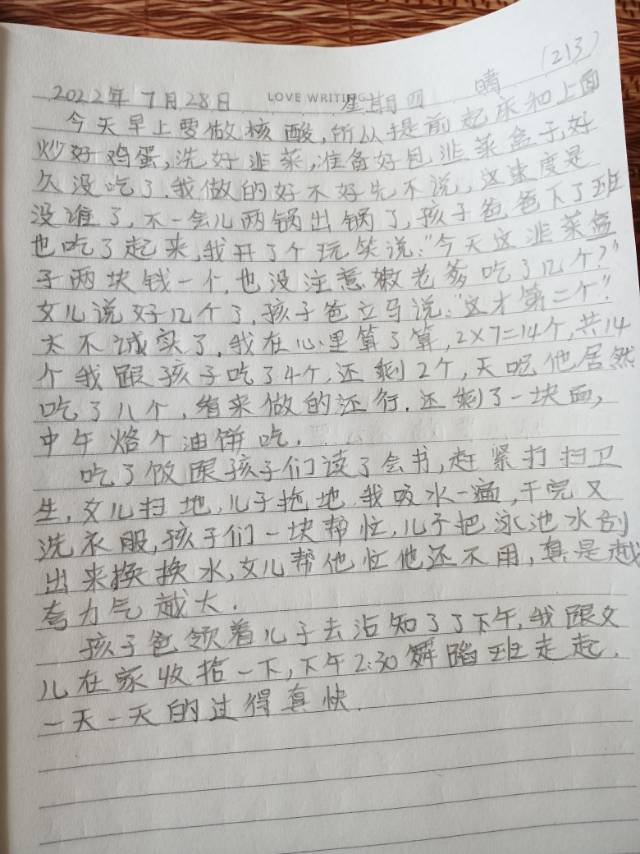 (213)
2022年7月28日 LOVE WRITING 星期四 晴
今天早上要做核酸,所以提前起床和上面
炒好鸡蛋,洗好韭菜,准备好包韭菜盒子,好
久没吃了.我做的好不好先不说,这速度是
没谁了,不一会儿两锅出锅了,孩子爸爸下了班
也吃了起来,我开了个玩笑说:"今天这韭菜盒
子两块钱一个.也没注意嫩老爹吃了几个?"
女儿说好几个了,孩子爸立马说:"这才第二个".
太不诚实了,我在心里算了算,2×7=14个,共14
个我跟孩子吃了4个,还剩2个,天呢他居然
吃了八个,看来做的还行.还剩了一块面,
中午烙个油饼吃.
吃了饭跟孩子们读了会书,赶紧打扫卫
生,女儿扫地,儿子拖地,我吸水一遍,干完又
洗衣服,孩子们一块帮忙,儿子把泳池水刮
出来换换水,女儿帮他忙他还不用,真是越
夸力气越大.
孩子爸领着儿子去沾知了了下午,我跟女
儿在家收拾一下,下午2:30舞蹈班走起.
一天一天的过得真快.